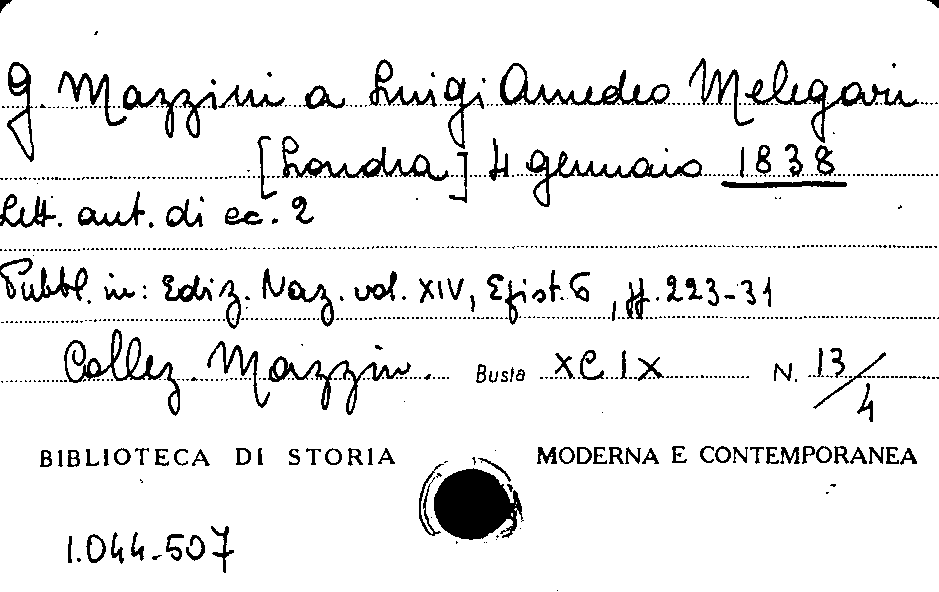 G. Mazzini a Luigi Amedeo Melegari
[Londra] 4 gennaio 1838
Lett. aut. di cc. 2
Pubbl. in: Ediz. Naz. vol. XIV, Epist. 6, pp. 223-31
Collez. Mazzin. Busta XCIX N. 13/4
BIBLIOTECA DI STORIA MODERNA E CONTEMPORANEA
1.044-507